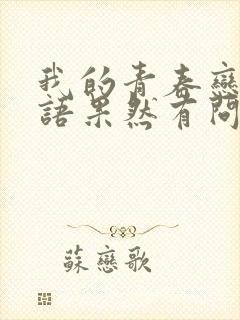 我的青春戀
語果然有問
蘇戀歌